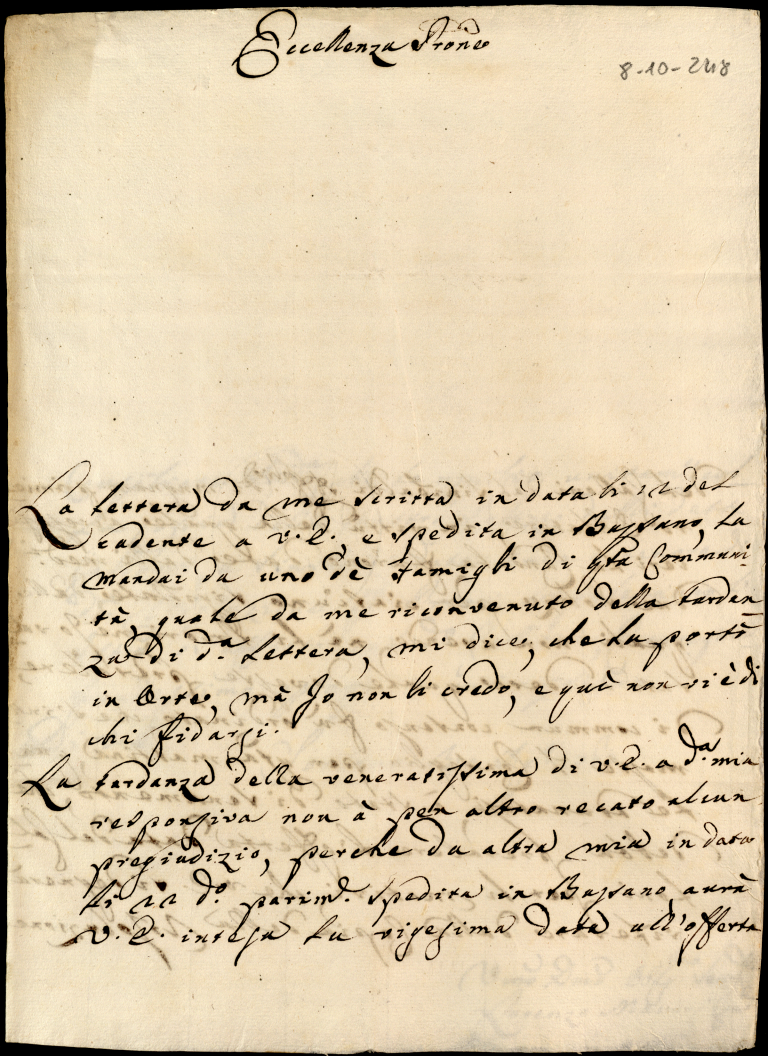 Eccellenza Prone
8-10-248
La lettera da me scritta in data li 12 del
cadente a V.E., e spedita in Bassano, la
mandai da uno dè famigli di qsta Communi-
tà, quale da me riconvenuto della tardan-
za di da lettera, mi dice, che la portò
in Orte, mà Jo non li credo, e què non vi è di
chi fidarsi.
La tardanza della veneratissima di V.E. a da mia
responsiva non à per altro recato alcun
pregiudizio, perche da altra mia in data
li 22 do parimd. spedita in Bassano aurà
V.E. intesa la vigesima data all'offerta